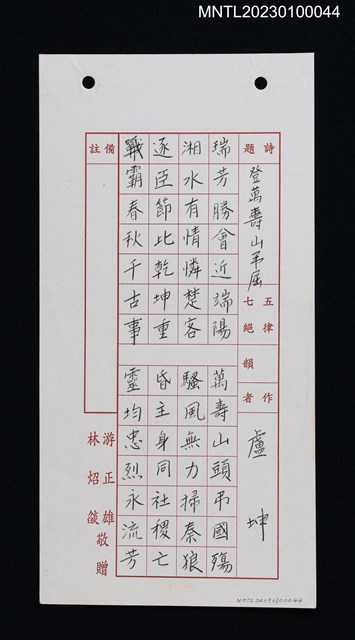 MNTL20230100044
詩題
登萬壽山弔屈
五律七絕
韻
作者
盧坤
瑞芳勝會近端陽
萬壽山頭弔國殤
湘水有情憐楚客
騷風無力掃秦狼
逐臣節比乾坤重
昏主身同社稷亡
戰霸春秋千古事
靈均忠烈永流芳
備註
游正雄
林炤燄
敬贈
MNTL20230100044